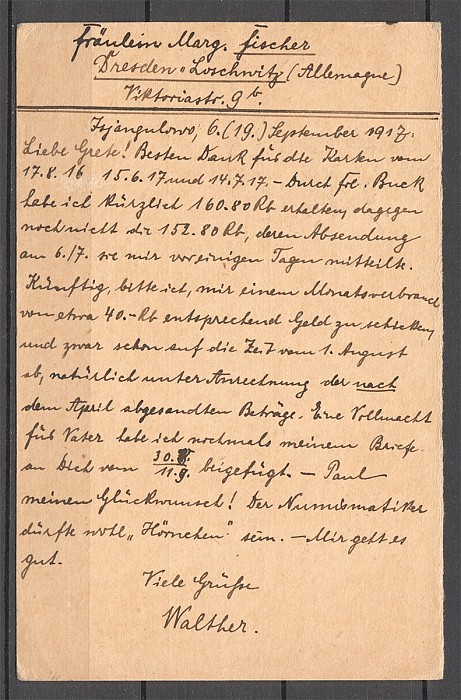 Fräulein Marg. Fischer
Dresden-Loschwitz (Allemagne)
Viktoriastr. 9 b.
Isjangulowo, 6. (19.) September 1917.
Liebe Grete! Besten Dank für die Karten vom
17.8.16 15.6.17 und 14.7.17. – Durch Frl. Buck
habe ich kürzlich 160.80 Rb erhalten, dagegen
noch nicht die 152.80 Rb, deren Absendung
am 6./7. sie mir vor einigen Tagen mitteilte.
Künftig, bitte ich, mir einem Monatsverbrauch
von etwa 40.– Rb entsprechend Geld zu schicken,
und zwar schon auf die Zeit vom 1. August
ab, natürlich unter Anrechnung der nach
dem April abgesandten Beträge. Eine Vollmacht
für Vater habe ich nochmals meinem Briefe
an Dich vom 30. 11.9. beigefügt. – Paul
meinen Glückwunsch! Der Numismatiker
dürfte wohl „Hörnchen" sein. – Mir geht es
gut.
Viele Grüsse
Walther.